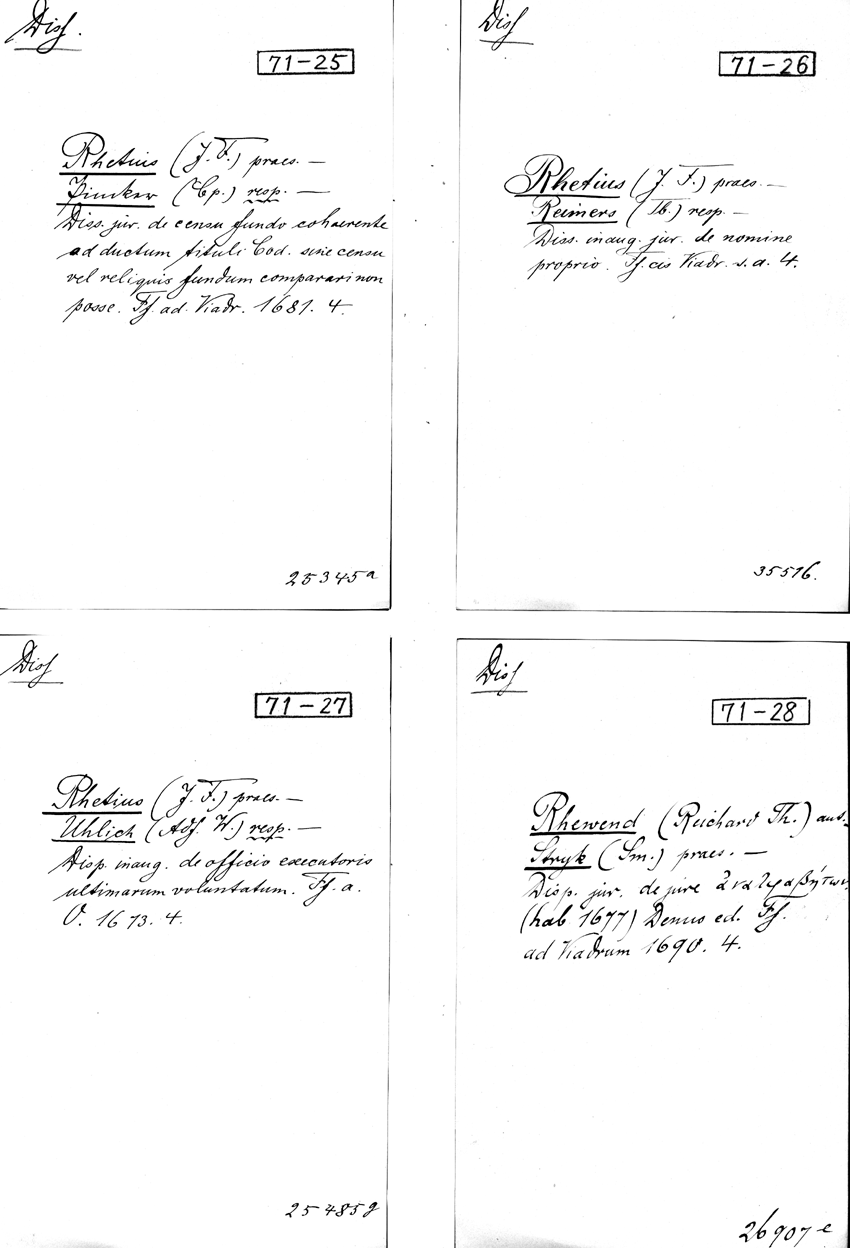 Diss.
71-25
Rhetius (J. F.) praes. —
(Cp.) resp. —
Diss. jur. de censu fundo cohaerente
ad ductum tituli Cod. sine censu
vel reliquis fundum comparari non
posse. Ff. ad. Viadr. 1681. 4.
25345a
Diss
71-26
Rhetius (J. F.) praes. —
Reimers (Ib.) resp. —
Diss. inaug. jur. de nomine
proprio. Ff. cis Viadr. s. a. 4.
35516.
Diss
71-27
Rhetius (J. F.) praes. —
Uhlich (Adf. W.) resp. —
Disp. inaug. de officio executoris
ultimarum voluntatum. Ff. a.
O. 1673. 4.
25485g
Diss
71-28
Rhewend (Reichard Th.) aut. —
Stryk (Sm.) praes. —
Disp. jur. de jure
(hab 1677) Denuo ed. Ff.
ad Viadrum 1690. 4.
26907e